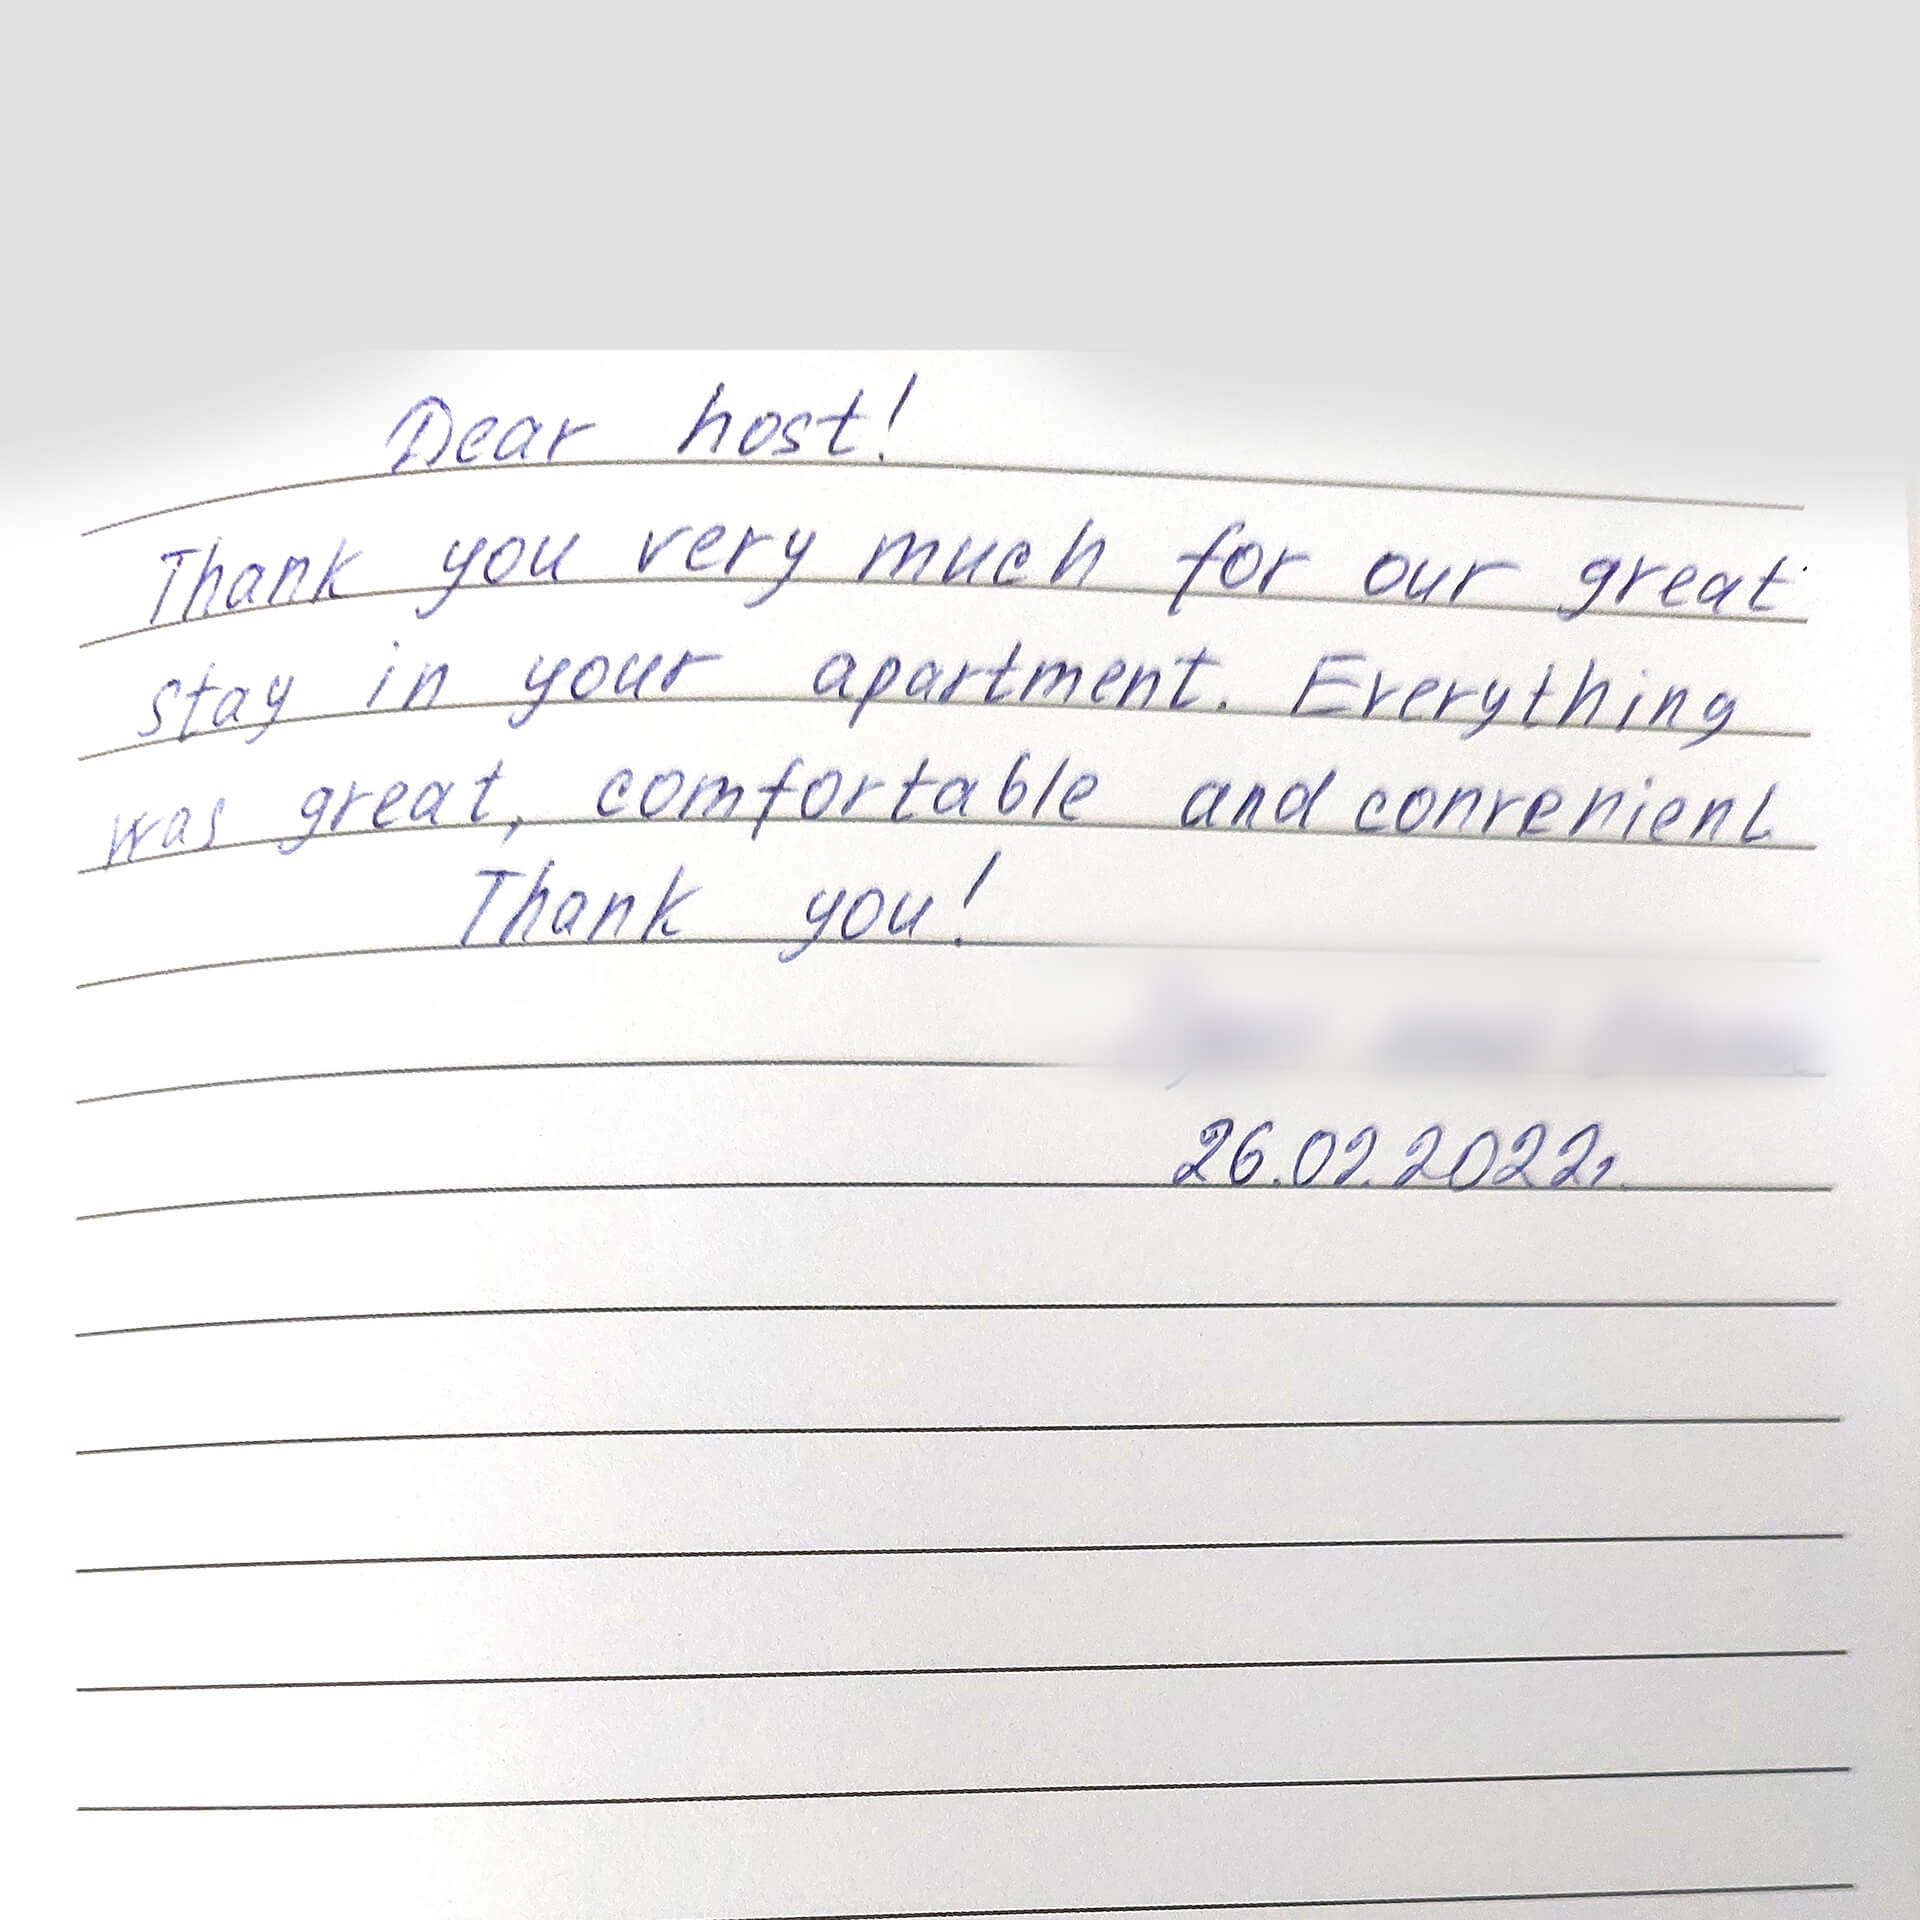 Dear host!
Thank you very much for our great
stay in your apartment. Everything
was great, comfortable and convenient
Thank you!
26.02.2022г.